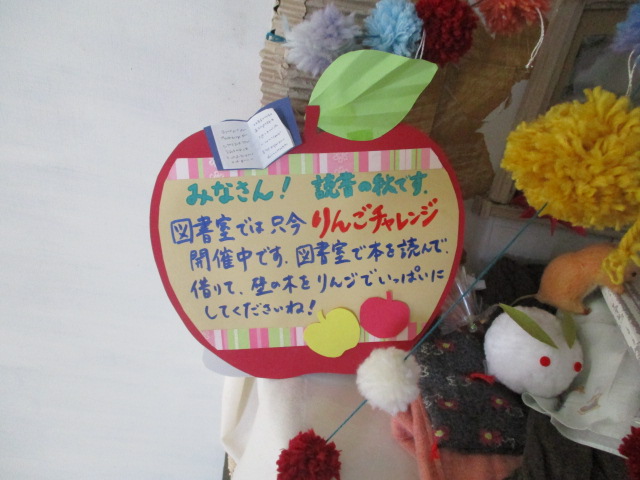 みなさん! 読書の秋です.
図書室では只今 りんごチャレンジ
開催中です. 図書室で本を読んで、
借りて、壁の木をりんごでいっぱいに
してくださいね!